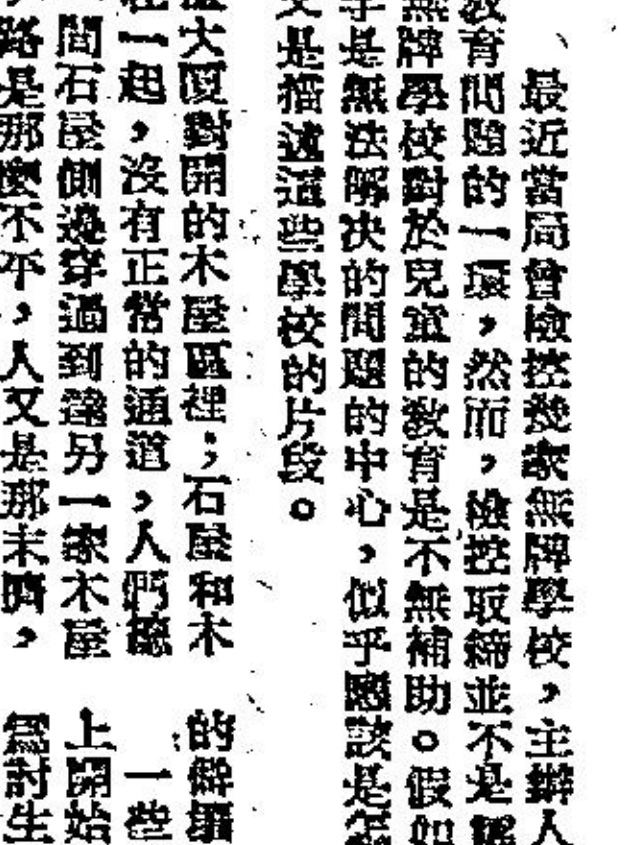 最近當局曾檢控幾家無牌學校，主辦人
教育問題的一環，然而，檢控取締並不是
無牌學校對於兒童的教育是不無補助。假如
乎是無法解決的問題的中心，似乎應該是怎
文是描述這些學校的片段。
大廈對開的木屋區裡；石屋和木
在一起，沒有正常的通道，人們總
間石屋側邊穿過到達另一家木屋
路是那麼不平，人又是那末擠，
的僻壤
一些
上開始
為討生